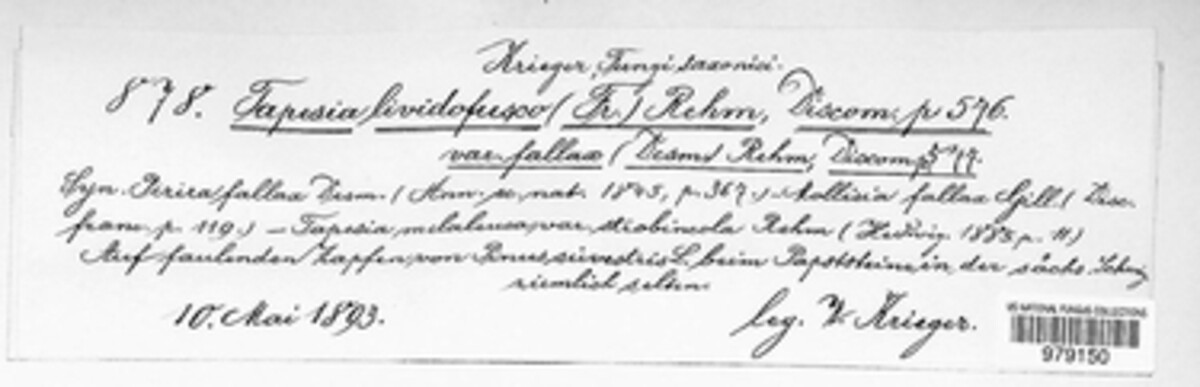 Krieger, Fungi saxonici.
878. Tapesia lividofusco (Fr.) Rehm, Discom. p 576.
var. fallax (Desm) Rehm, Discom p 577.
Syn. Peziza fallax Desm. (Ann. sc. nat. 1845, p. 367.) Mollisia fallax Gill. (Disc.
franc. p. 119.) – Tapesia melaleuca var. strobincola Rehm (Hedwig. 1885 p. 11)
Auf faulenden Zapfen von Pinus silvestris L. beim Papststeine in der sächs. Schweiz
ziemlich selten.
10. Mai 1893.
leg. W. Krieger.
US NATIONAL FUNGUS COLLECTIONS
979150